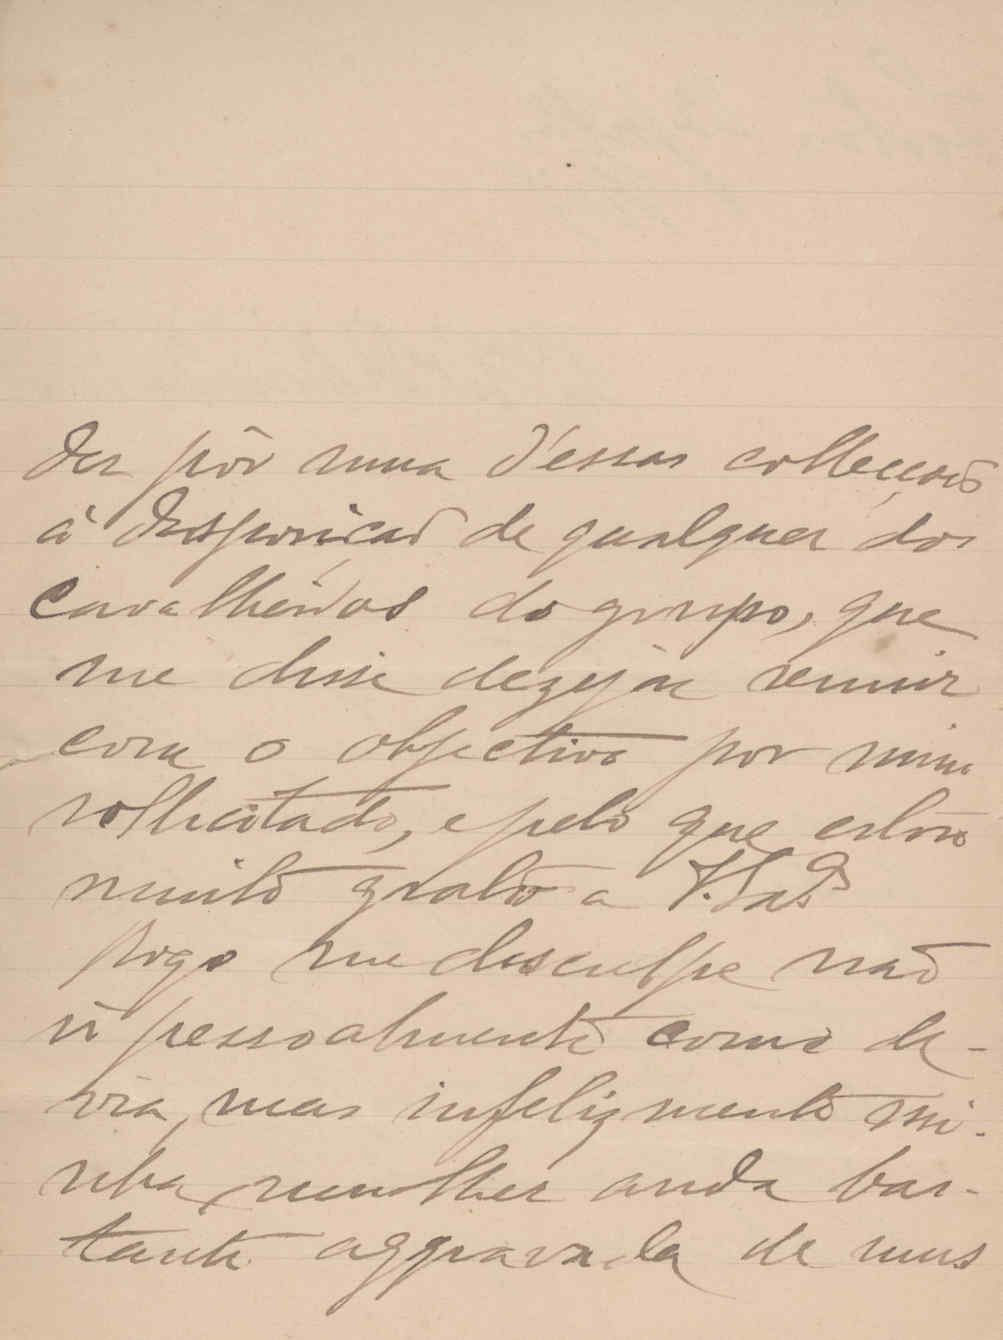 der pôr numa d'essas collecções
á disposição de qualquer dos
cavalheiros do grupo, que
me disse dezejar reunir
com o objectivo por mim
sollicitado, e pelo que estou
muito grato a V. S.as
Rogo me desculpe não
ir pessoalmente como de-
via, mas infelizmente mi-
nha mulher anda bas-
tante aggravada de seus